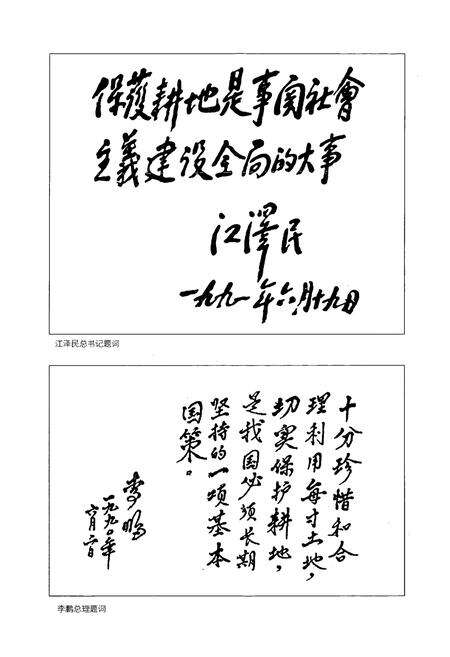 保護耕地是事関社會
主義建设全局的大事
江澤民
一九九一年六月十九日
江泽民总书记题词
十分珍惜和合
理利用每寸土地，
切实保护耕地，
是我国必须长期
坚持的一项基本
国策。
李鹏
一九九〇年
李鹏总理题词